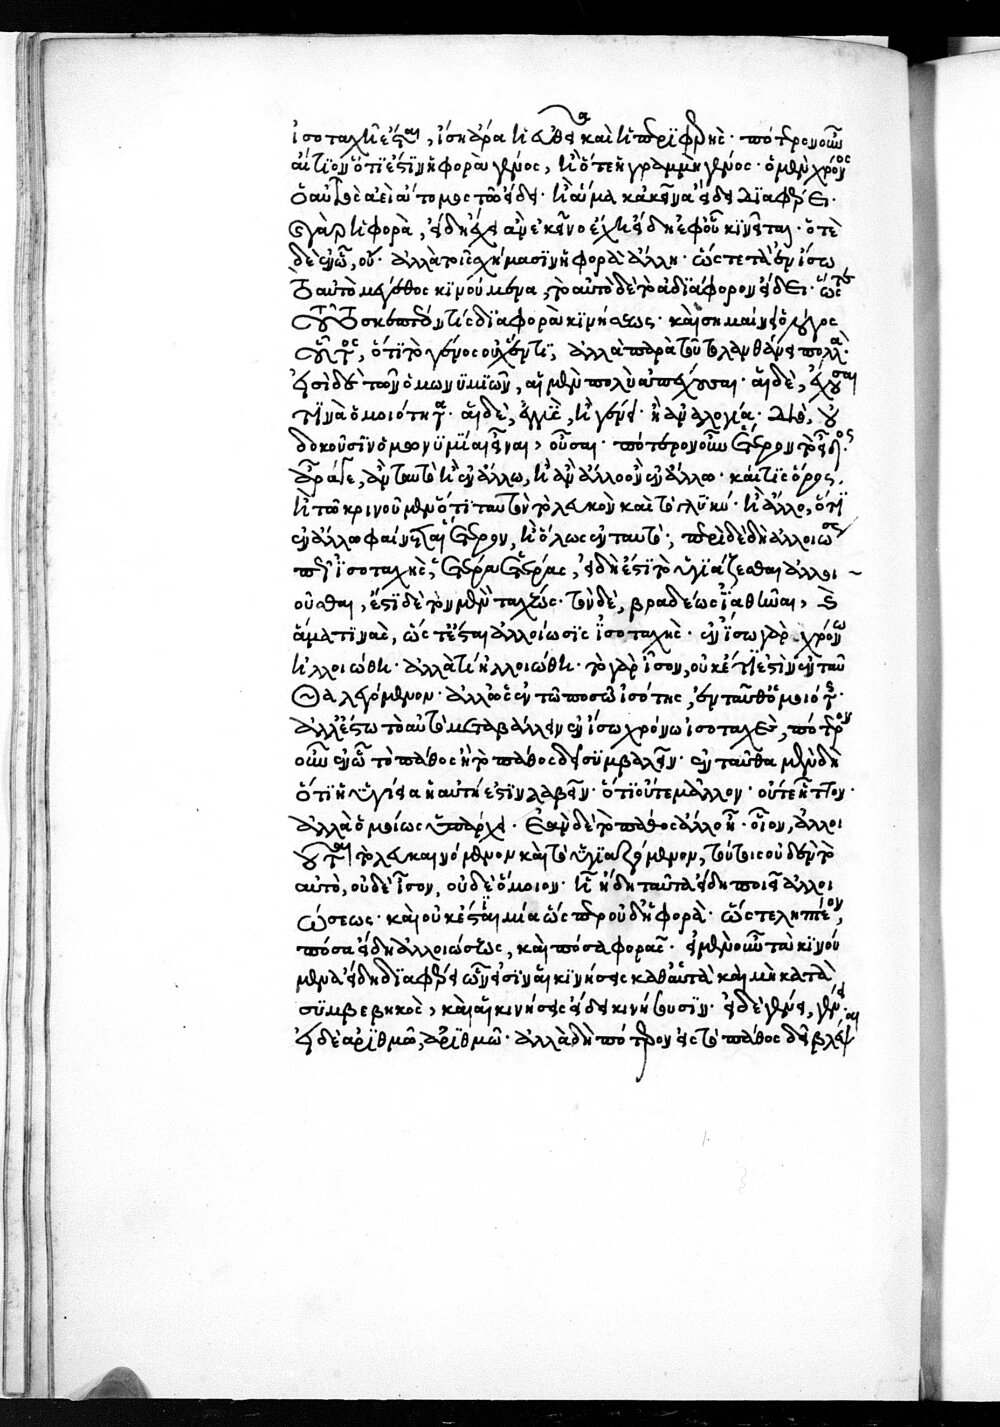 ἰσοταχῆ ἔσται, ἴση ἄρα ἡ εὐθεῖα καὶ ἡ περιφερής· πότερον οὖν
αἴτιον ὅτι ἐστὶν ἡ φορὰ γένος, ἢ ὅτι ἡ γραμμὴ γένος· ὁ μὲν χρόνος
ὁ αὐτὸς ἀεὶ ἄτομος τῷ εἴδει· ἢ ἅμα κἀκεῖνα εἴδει διαφέρει·
γὰρ ἡ φορὰ, εἴδη ἔχει ἂν ἐκεῖνο ἔχῃ εἴδη ἐφ' οὗ κινεῖται· ὁτὲ
δὲ ἐν ᾧ, οὐ· ἀλλὰ τοῖς σχήμασιν ἡ φορὰ ἄλλη· ὥστε τὰ ἐν ἴσῳ
τὸ αὐτὸ μέγεθος κινούμενα, τὸ αὐτὸ δὲ τὸ ἀδιάφορον εἴδει· ὥστε
τοῦτο σκεπτέον τίς διαφορὰ κινήσεως· καὶ σημαίνει ὁ λόγος
οὗτος, ὅτι τὸ γένος οὐχ ἕν τι, ἀλλὰ παρὰ τοῦτο λανθάνει πολλά·
εἰσὶ δὲ τῶν ὁμωνυμιῶν, αἱ μὲν πολὺ ἀπέχουσαι· αἱ δὲ, ἔχουσαι
τινὰ ὁμοιότητα· αἱ δὲ, ἐγγὺς, ἢ γένει· ἢ ἀναλογία· διὸ, οὐ
δοκοῦσιν ὁμωνυμίαι εἶναι, οὖσαι· πότερον οὖν ἕτερον τὸ εἶδος·
ἆρά γε, ἂν ταυτὸ ἢ ἐν ἄλλω, ἢ ἂν ἄλλο ἐν ἄλλω· καὶ τίς ὅρος.
ἢ τῷ κρινοῦμεν ὅτι ταυτὸν τὸ λευκὸν καὶ τὸ γλυκύ· ἢ ἄλλο, ὅτι
ἐν ἄλλω φαίνεται ἕτερον, ἢ ὅλως οὐ ταυτό; περὶ δὲ δὴ ἀλλοιώσεως
πῶς ἰσοταχὴς, ἑτέρα ἑτέρας, εἰ δὴ ἐστὶ τὸ ὑγιάζεσθαι ἀλλοι
οῦσθαι, ἔστι δὲ τὸν μὲν ταχέως· τὸν δὲ, βραδέως ἰαθῆναι, καὶ
ἅμα τινὰς, ὥστε ἔσται ἀλλοίωσις ἰσοταχής· ἐν ἴσω γὰρ χρόνω
ἠλλοιώθη· ἀλλὰ τί ἠλλοιώθη· τὸ γὰρ ἴσον, οὐκέτι ἐστὶν ἐνταῦ
θα λεγόμενον· ἀλλ' ὡς ἐν τῷ ποσῷ ἰσότης, ἐνταῦθ' ὁμοιότης·
ἀλλ' ἔστω τὸ αὐτὸ μεταβάλλειν ἐν ἴσω χρόνω ἰσοταχὲς, πότερον
οὖν ἐν ᾧ τὸ πάθος ἢ τὸ πάθος δεῖ συμβαλεῖν· ἐνταῦθα μὲν δὴ
ὅτι ἡ ὑγίεια ἡ αὐτὴ ἐστὶν λαβεῖν· ὅτι οὔτε μᾶλλον· οὔτε ἧττον·
ἀλλὰ ὁμοίως ὑπάρχει· ἐὰν δὲ τὸ πάθος ἄλλο ἦ· οἷον, ἀλλοι
οῦται τὸ λευκαινόμενον καὶ τὸ ὑγιαζόμενον, τούτοις οὐδὲν τὸ
αὐτὸ, οὐδὲ ἴσον, οὐδὲ ὅμοιον· ἢ ἤδη ταῦτα εἴδη ποιεῖ ἀλλοι
ώσεως· καὶ οὐκ ἔστι μία ὥσπερ οὐδ' ἡ φορά· ὥστε ληπτέον,
πόσα εἴδη ἀλλοιώσεως, καὶ πόσα φορᾶς· εἰ μὲν οὖν τὰ κινού
μενα εἴδη διαφέρει ὧν εἰσὶν αἱ κινήσεις καθ' αὑτὰ καὶ μὴ κατὰ
συμβεβηκὸς, καὶ αἱ κινήσεις εἴδει κινήσουσιν· εἰ δὲ γένει, γένει·
εἰ δὲ ἀριθμῶ, ἀριθμῶ· ἀλλὰ δὴ πότερον εἰς τὸ πάθος δεῖ βλέψαι